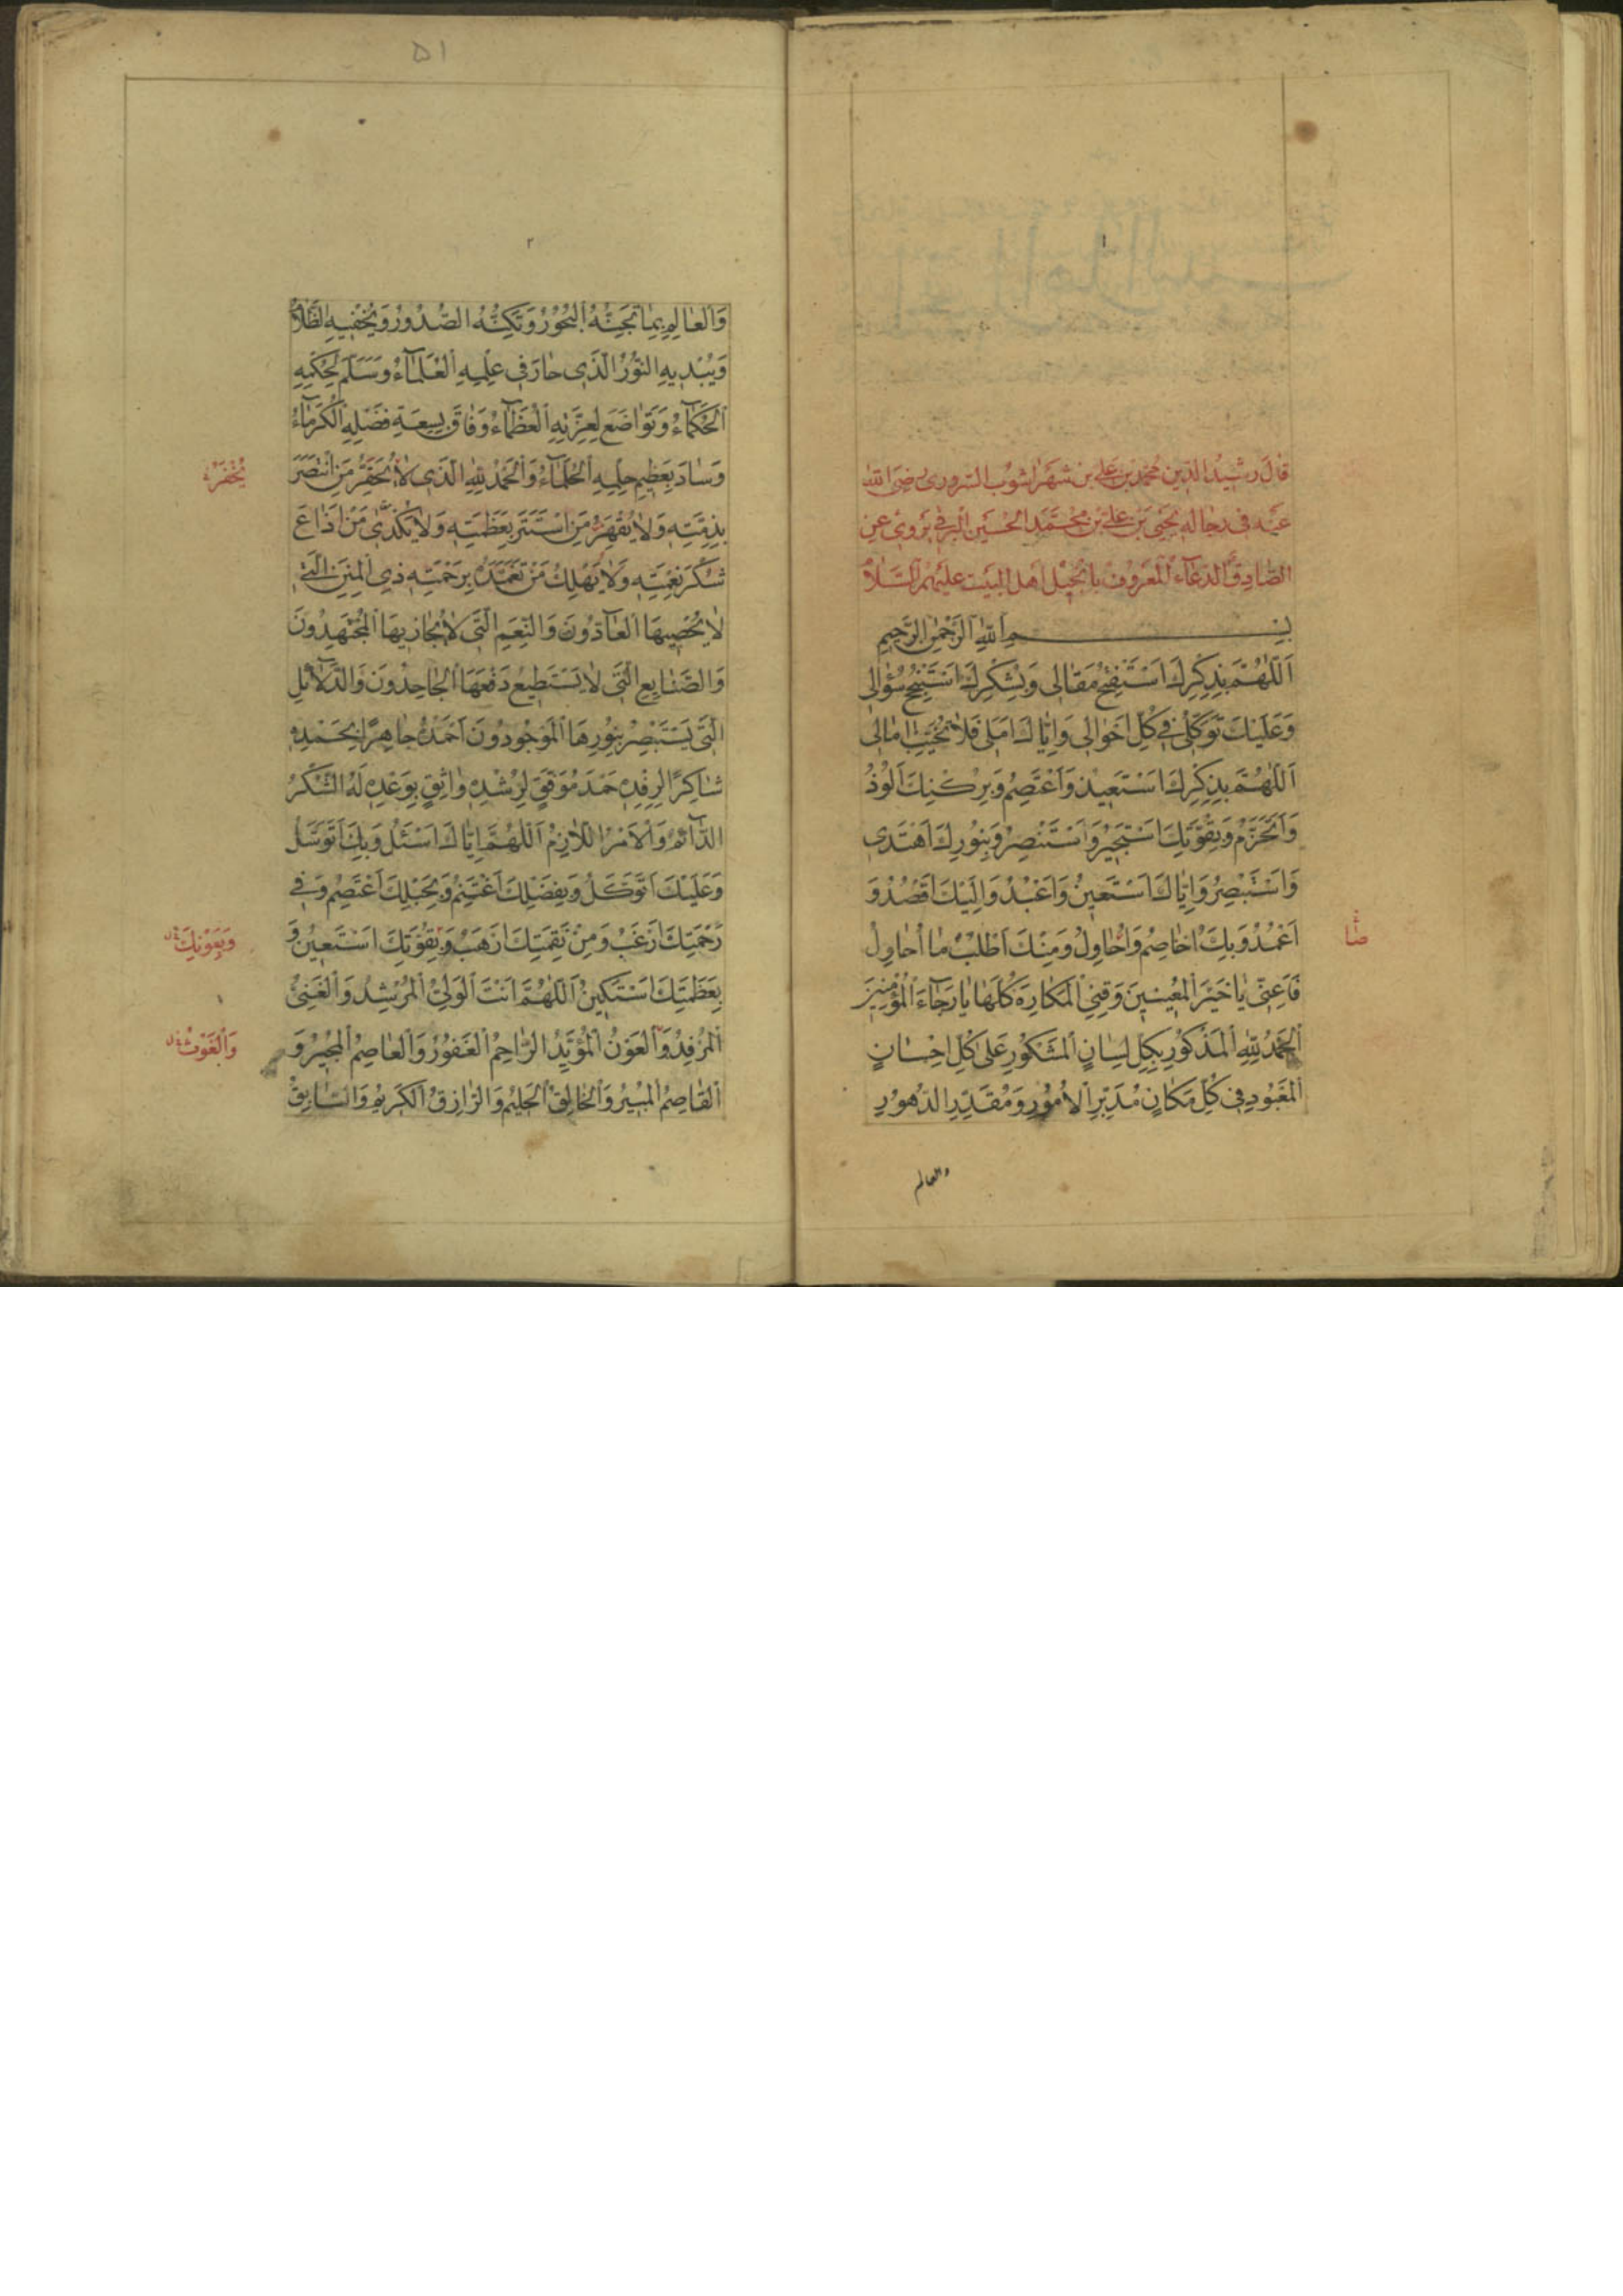 ١
قالَ رَشيدُ الدّين مُحمّد بن عَلي بن شهرَاشوُب السّروري رضيَ الله
عَنه في رجاله يَحيَى بن علي بن محمّد الحُسَين البرقي يَروي عن
الصّادق الدّعآء المعَروف بانجيل اهل البيَت عليهم السّلام
بِسْمِ اللهِ الرَّحْمٰنِ الرَّحيمِ
اَللّٰهُمَّ بِذِكْرِكَ اَسْتَفْتِحُ مَقٰالى وَبِشُكْرِكَ اَسْتَنْجِحُ سُؤٰالى
وَعَلَيْكَ تَوَكُّلى فى كُلِّ اَحْوٰالى وَاِيّٰاكَ اَمَلى فَلٰا تُخَيِّبْ اٰمٰالى
اَللّٰهُمَّ بِذِكْرِكَ اَسْتَعيذُ وَاَعْتَصِمُ وَبِرُكْنِكَ اَلُوذُ
وَاَتَحَزَّمُ وَبِقُوَّتِكَ اَسْتَجيرُ وَاَسْتَنْصِرُ وَبِنُورِكَ اَهْتَدى
وَاَسْتَبْصِرُ وَاِيّٰاكَ اَسْتَعينُ وَاَعْبُدُ وَاِلَيْكَ اَقْصُدُ وَ
اَعْمُدُ وَبِكَ اُخٰاصِمُ وَاُحٰاوِلُ وَمِنْكَ اَطْلُبُ مٰا اُحٰاوِلُ
فَاَعِنّى يٰا خَيْرَ الْمُعينينَ وَقِنِى الْمَكٰارِهَ كُلَّهٰا يٰا رَجٰآءَ الْمُؤْمِنينَ
اَلْحَمْدُ لِلّٰهِ الْمَذْكُورِ بِكُلِّ لِسٰانٍ الْمَشْكُورِ عَلى كُلِّ اِحْسٰانٍ
الْمَعْبُودِ فى كُلِّ مَكٰانٍ مُدَبِّرِ الْاُمُورِ وَمُقَدِّرِ الدُّهُورِ
والعالم
٥١
٢
وَالْعٰالِمِ بِمٰا تُجِنُّهُ الْبُحُورُ وَتُكِنُّهُ الصُّدُورُ وَيُخْفيهِ الظَّلٰامُ
وَيُبْديهِ النُّورُ الَّذى حٰارَ فى عِلْمِهِ الْعُلَمٰآءُ وَسَلَّمَ لِحُكْمِهِ
الْحُكَمٰآءُ وَتَوٰاضَعَ لِعِزَّتِهِ الْعُظَمٰآءُ وَفٰاقَ بِسِعَةِ فَضْلِهِ الْكُرَمٰآءُ
وَسٰادَ بِعَظيمِ حِلْمِهِ الْحُلَمٰآءُ وَالْحَمْدُ لِلّٰهِ الَّذى لٰا يُخْفَرُ مَنِ انْتَصَرَ
يُخْفَرُ
بِذِمَّتِهِ وَلٰا يُقْهَرُ مَنِ اسْتَتَرَ بِعَظَمَتِهِ وَلٰا يُكْدٰى مَنْ اَذٰاعَ
شُكْرَ نِعْمَتِهِ وَلٰا يَهْلِكُ مَنْ تَغَمَّدَهُ بِرَحْمَتِهِ ذِى الْمِنَنِ الَّتى
لٰا يُحْصيهَا الْعٰآدُّونَ وَالنِّعَمِ الَّتى لٰا يُجٰازيهَا الْمُجْتَهِدُونَ
وَالصَّنٰايِعِ الَّتى لٰا يَسْتَطيعُ دَفْعَهَا الْجٰاحِدُونَ وَالدَّلٰآئِلِ
الَّتى يَسْتَبْصِرُ بِنُورِهَا الْمَوْجُودُونَ اَحْمَدُهُ جٰاهِرًا بِحَمْدِهِ
شٰاكِرًا لِرِفْدِهِ حَمْدَ مُوَفَّقٍ لِرُشْدِهِ وٰاثِقٍ بِوَعْدِهِ لَهُ الشُّكْرُ
الدّٰآئِمُ وَالْاَمْرُ اللّٰازِمُ اَللّٰهُمَّ اِيّٰاكَ اَسْئَلُ وَبِكَ اَتَوَسَّلُ
وَعَلَيْكَ اَتَوَكَّلُ وَبِفَضْلِكَ اَغْتَنِمُ وَبِحَبْلِكَ اَعْتَصِمُ وَفى
رَحْمَتِكَ اَرْغَبُ وَمِنْ نَقِمَتِكَ اَرْهَبُ وَبِقُوَّتِكَ اَسْتَعينُ وَ
وَبِعَوْنِكَ
بِعَظَمَتِكَ اَسْتَكينُ اَللّٰهُمَّ اَنْتَ الْوَلِىُّ الْمُرْشِدُ وَالْغَنِىُّ
الْمُرْفِدُ وَالْعَوْنُ الْمُؤَيِّدُ الرّٰاحِمُ الْغَفُورُ وَالْعٰاصِمُ الْمُجيرُ وَ
وَالْغَوْثُ
الْقٰاصِمُ الْمُبيرُ وَالْخٰالِقُ الْحَليمُ وَالرّٰازِقُ الْكَريمُ وَالسّٰابِقُ